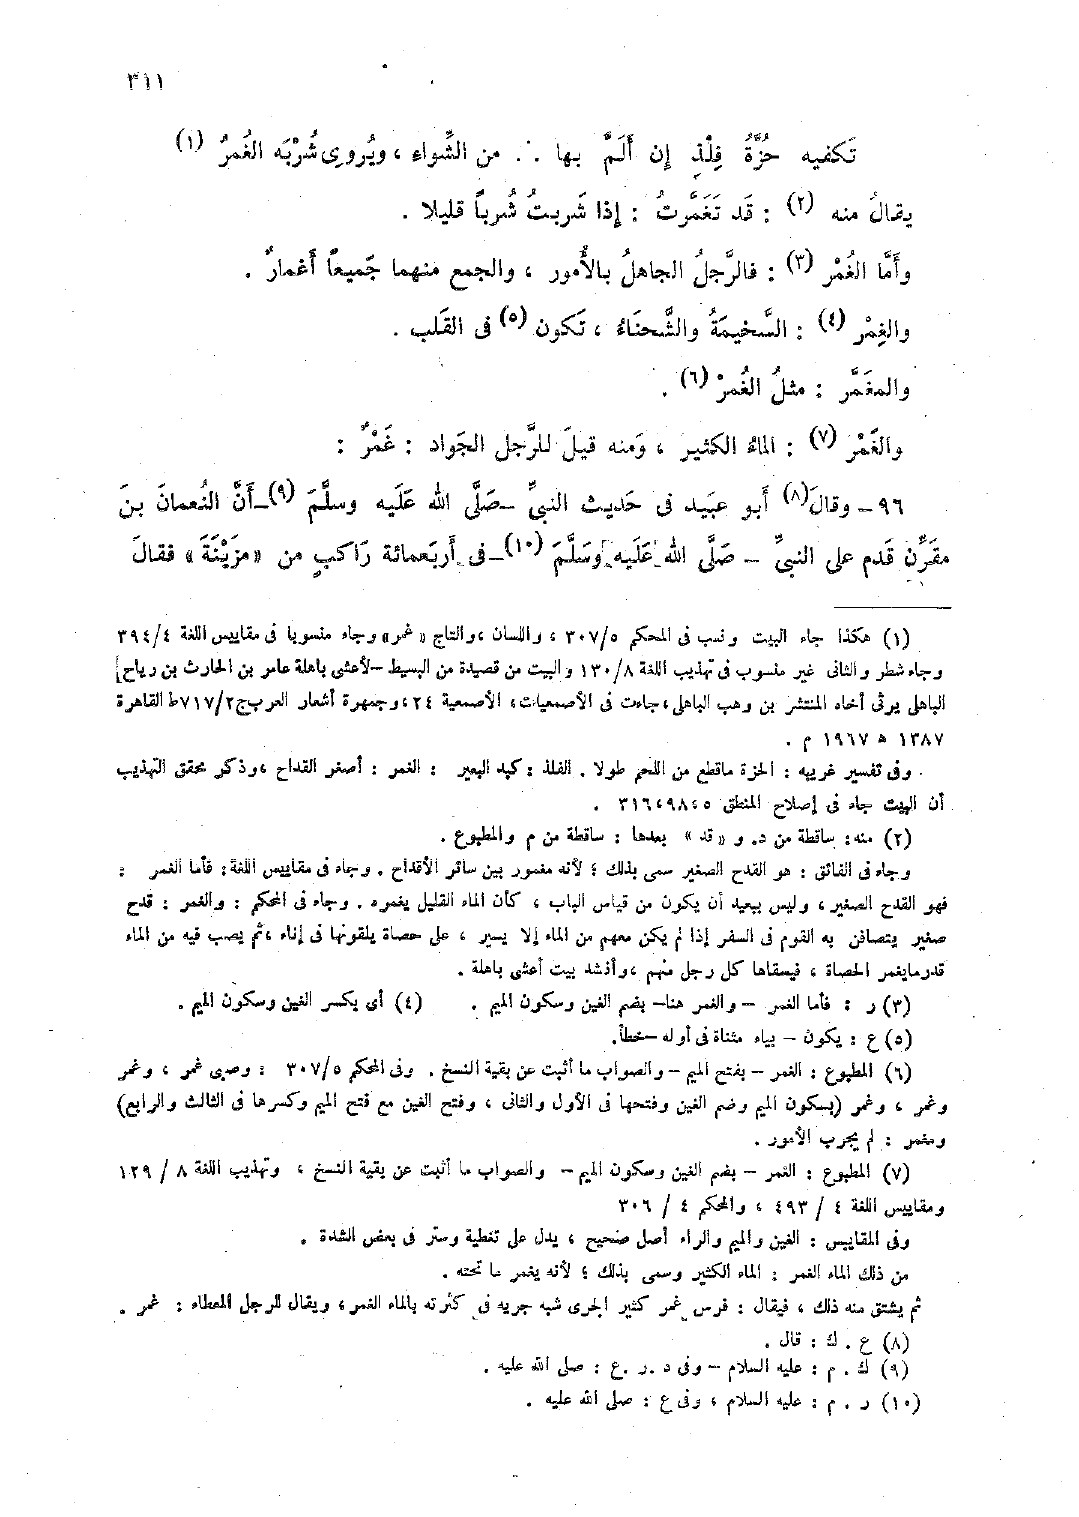 ٣١١
تَكفيه حُزَّةُ فِلْذٍ إن أَلَمَّ بها ∴ من الشِّواءِ ، ويُروِى شُرْبَه الغُمَرُ (١)
يقالُ منه (٢) : قَد تَغَمَّرتُ : إذا شَربتُ شُرباً قليلا .
وأَمَّا الغُمْر (٣) : فالرَّجلُ الجاهلُ بالأُمور ، والجمع منهما جَميعاً أَغمارٌ .
والغِمْر (٤) : السَّخيمَةُ والشَّحنَاءُ ، تَكون (٥) فى القَلب .
والمغَمَّر : مثلُ الغُمرْ (٦) .
والغَمْر (٧) : الماءُ الكثير ، وَمنه قيلَ للرَّجل الجَواد : غَمْرٌ :
٩٦ – وقالَ (٨) أَبو عبَيد فى حَديث النبىِّ – صَلَّى اللهُ عَلَيه وسلَّمَ (٩) – أَنَّ النُّعمانَ بنَ
مقَرِّن قَدم على النبىِّ – صَلَّى اللهُ عَلَيه وَسَلَّمَ (١٠) – فى أَربَعمائة رَاكبٍ من «مزَيْنَةَ» فقالَ
(١) هكذا جاء البيت ونسب فى المحكم ٣٠٧/٥ ، واللسان ، والتاج « غمر » وجاء منسوبا فى مقاييس اللغة ٣٩٤/٤
وجاء شطر والثانى غير منسوب فى تهذيب اللغة ١٣٠/٨ والبيت من قصيدة من البسيط – لأعشى باهلة عامر بن الحارث بن رياح
الباهلى يرثى أخاه المنتشر بن وهب الباهلى ، جاءت فى الأصمعيات ، الأصمعية ٢٤ ، وجمهرة أشعار العرب ج٧١٧/٢ ط القاهرة
١٣٨٧ ه ١٩٦٧ م .
وفى تفسير غريبه : الحزة ماقطع من اللحم طولا . الفلذ : كبد البعير : الغمر : أصغر القداح ، وذكر محقق التهذيب
أن البيت جاء فى إصلاح المنطق ٥ ، ٩٨ ، ٣١٦ .
(٢) منه : ساقطة من د. و « قد » بعدها : ساقطة من م والمطبوع .
وجاء فى الفائق : هو القدح الصغير سمى بذلك ؛ لأنه مغمور بين سائر الأقداح . وجاء فى مقاييس اللغة : فأما الغمر :
فهو القدح الصغير ، وليس ببعيد أن يكون من قياس الباب ، كأن الماء القليل يغمره . وجاء فى المحكم : والغمر : قدح
صغير يتصافن به القوم فى السفر إذا لم يكن معهم من الماء إلا يسير ، على حصاة يلقونها فى إناء ، ثم يصب فيه من الماء
قدر مايغمر الحصاة ، فيسقاها كل رجل منهم ، وأنشد بيت أعشى باهلة .
(٣) ر : فأما الغمر – والغمر هنا – بضم الغين وسكون الميم . (٤) أى يكسر الغين وسكون الميم .
(٥) ع : يكون – بياء مثناة فى أوله – خطأ.
(٦) المطبوع : الغمر – بفتح الميم – والصواب ما أثبت عن بقية النسخ . وفى المحكم ٣٠٧/٥ : وصبى غمر ، وغمر
وغمر ، وغمر (بسكون الميم وضم الغين وفتحها فى الأول والثانى ، وفتح الغين مع فتح الميم وكسرها فى الثالث والرابع)
ومغمر : لم يجرب الأمور .
(٧) المطبوع : الغمر – بضم الغين وسكون الميم – والصواب ما أثبت عن بقية النسخ ، وتهذيب اللغة ٨ / ١٢٩
ومقاييس اللغة ٤ / ٤٩٣ ، والمحكم ٤ / ٣٠٦
وفى المقاييس : الغين والميم والراء أصل صحيح ، يدل على تغطية وستر فى بعض الشدة .
من ذلك الماء الغمر : الماء الكثير وسمى بذلك ؛ لأنه يغمر ما تحته .
ثم يشتق منه ذلك ، فيقال : فرس غمر كثير الجرى شبه جريه فى كثرته بالماء الغمر ، ويقال للرجل المعطاء : غمر .
(٨) ع . ك : قال .
(٩) ك . م : عليه السلام – وفى د . ر . ع : صلى الله عليه .
(١٠) ر . م : عليه السلام ، وفى ع : صلى الله عليه .